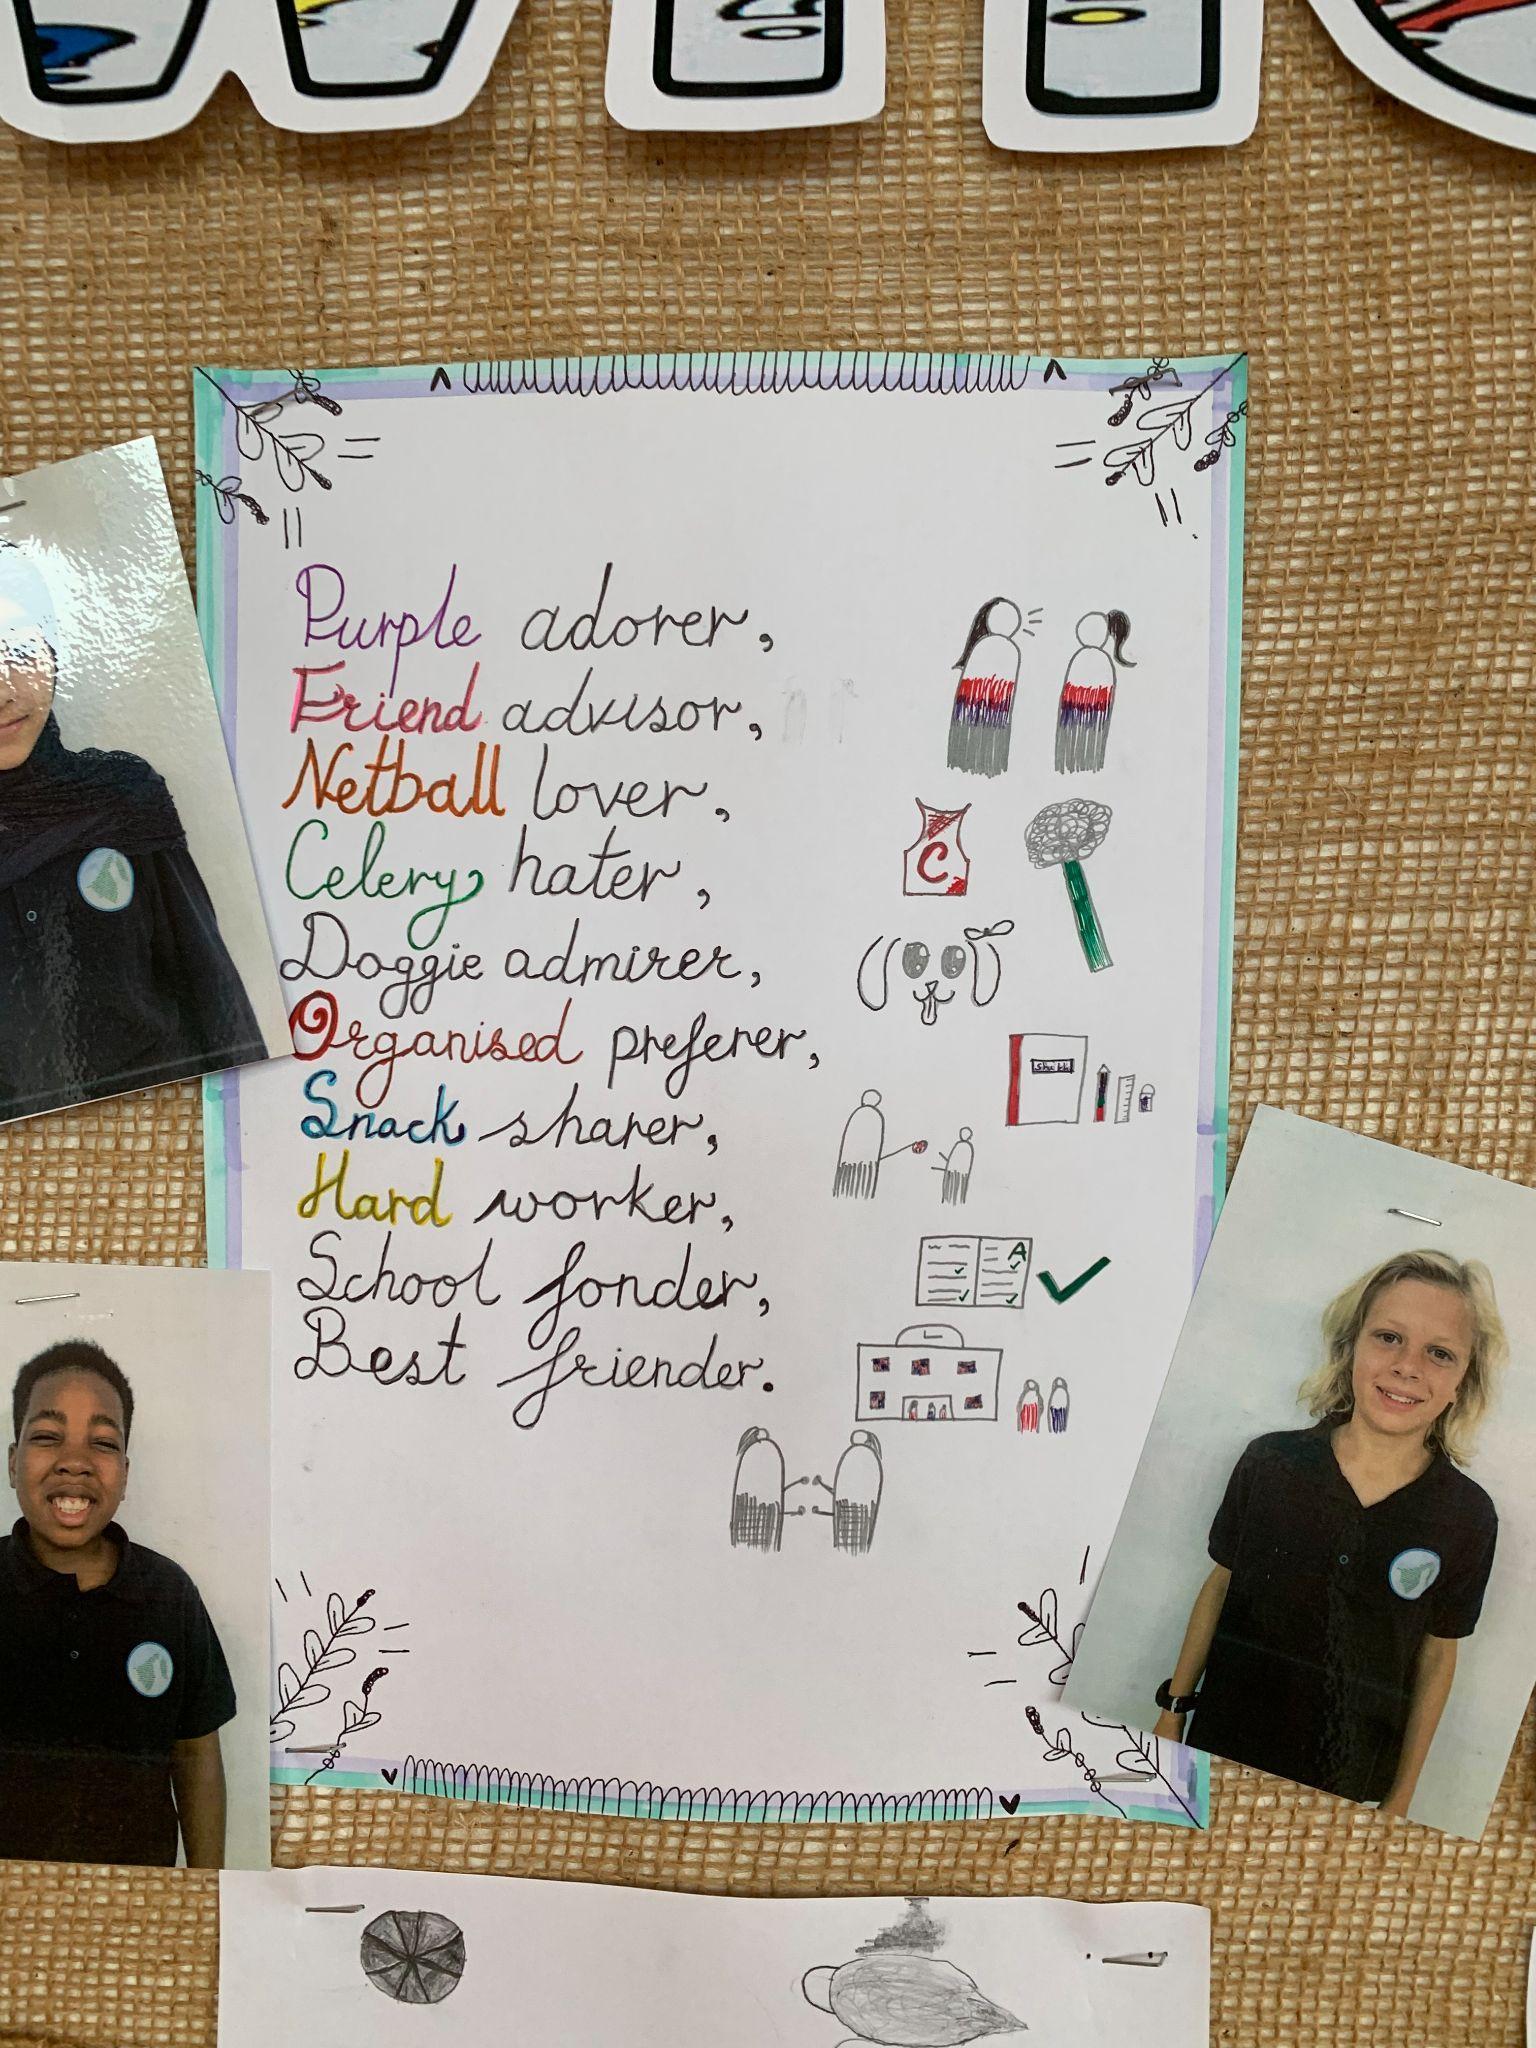 Purple adorer,
Friend advisor,
Netball lover,
Celery hater,
Doggie admirer,
Organised preferer,
Snack sharer,
Hard worker,
School fonder,
Best friender.
C
A